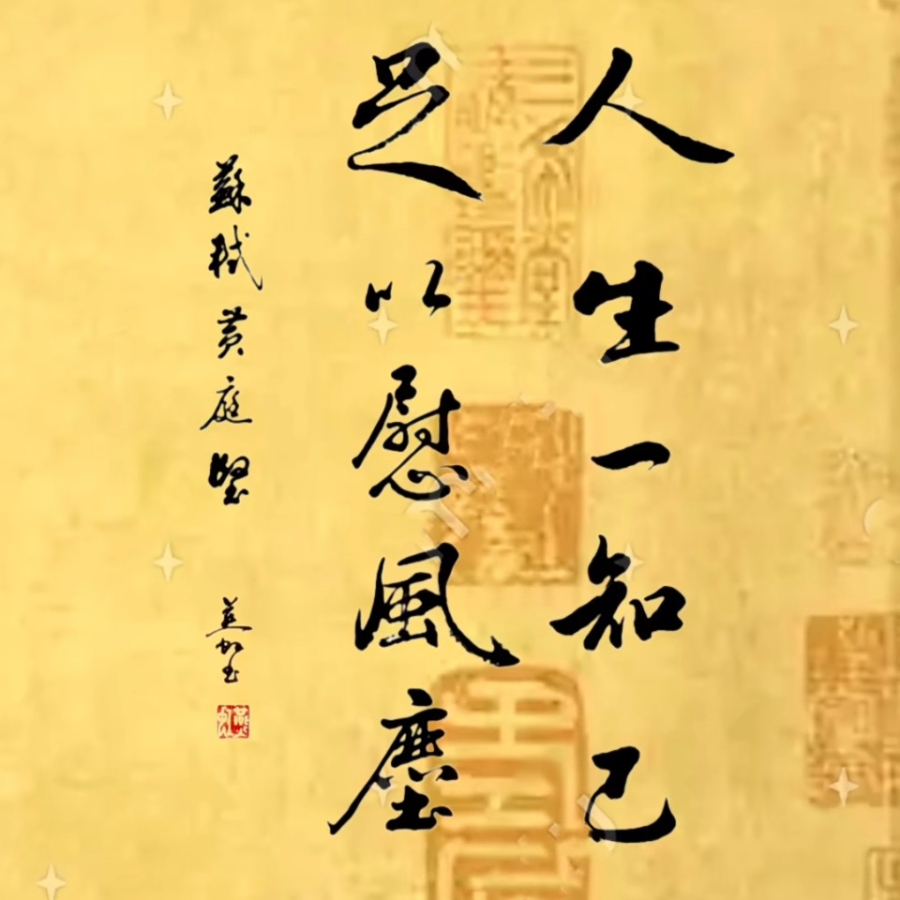 人生一知己
足以慰風塵
蘇軾黃庭堅